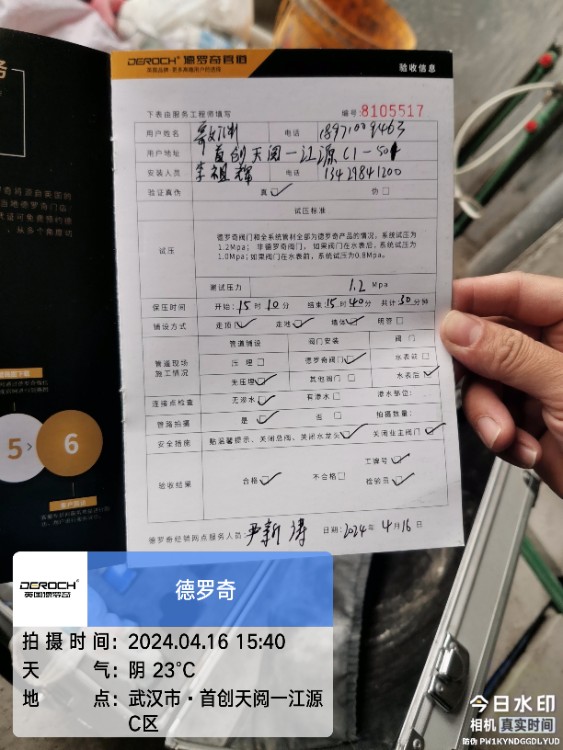 DEROCH 德罗奇管道
验收信息
下表由服务工程师填写 编号:8105517
用户姓名 电话 18971009463
用户地址 首创天阅一江源C1-501
安装人员 李祖辉 电话 13429841200
验证真伪 真☑ 伪☐
试压标准
试压
德罗奇阀门和全系统管材全部为德罗奇产品的情况,系统试压为
1.2Mpa; 非德罗奇阀门, 如果阀门在水表后,系统试压为
1.0Mpa;如果阀门在水表前,系统试压为0.8Mpa。
测试压力 1.2 Mpa
保压时间 开始:15时10分 结束:15时40分 共计30分钟
铺设方式 走顶☑ 走地☑ 墙体☑ 明管☐
管道铺设 阀门安装 阀门
管道现场
施工情况
压埋☐ 德罗奇阀门☑ 水表前☐
未压埋☑ 其他阀门☐ 水表后☑
连接点检查 无渗水☑ 有渗水☐ 渗水部位:
管路拍摄 是☑ 否☐ 拍摄数量:
安全措施 贴温馨提示、关闭总阀、关闭水龙头☑ 关闭业主阀门☑
验收结果 合格☑ 不合格☐ 工牌号☑
检验员☑
德罗奇经销网点服务人员: 尹新涛 日期:2024年4月16日
5 > 6
DEROCH
英国德罗奇
德罗奇
拍摄时间: 2024.04.16 15:40
天气: 阴 23°C
地点: 武汉市·首创天阅一江源
C区
今日水印
相机 真实时间
防伪 PW1KYNDGGDLYUD